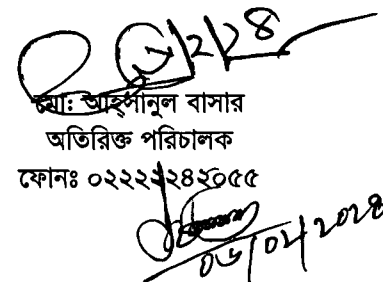 ৬/২/২৪
মো: আহ্সানুল বাসার
অতিরিক্ত পরিচালক
ফোনঃ ০২২২২২৪২০৫৫
০৬/০২/২০২৪